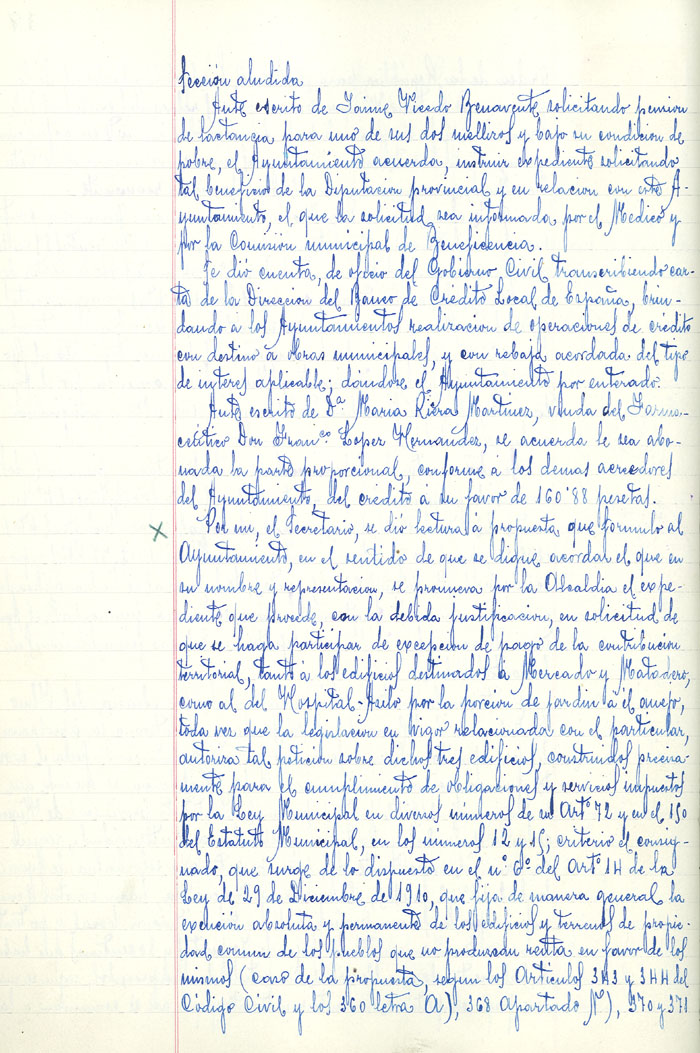 Sección aludida
Ante escrito de Jaime Vicedo Benavente solicitando pension
de lactancia para uno de sus dos mellizos y bajo su condicion de
pobre, el Ayuntamiento acuerda, instruir expediente solicitando
tal beneficio de la Diputacion provincial y en relacion con este A-
yuntamiento, el que la solicitud sea informada por el Medico y
por la Comision municipal de Beneficencia.
Se dió cuenta, de oficio del Gobierno Civil transcribiendo car-
ta de la Direccion del Banco de Crédito Local de España, brin-
dando á los Ayuntamientos realizacion de operaciones de crédito
con destino á obras municipales, y con rebaja acordada del tipo
de interes aplicable; dándose el Ayuntamiento por enterado.
Ante escrito de Dª Maria Riera Martinez, viuda del Farma-
céutico Don Franco Lopez Hernandez, se acuerda le sea abo-
nada la parte proporcional, conforme á los demas acreedores
del Ayuntamiento, del credito á su favor de 160'88 pesetas.
Por mi, el Secretario, se dió lectura á propuesta que formulo al
Ayuntamiento, en el sentido de que se digne acordar el que en
su nombre y representacion, se promueva por la Alcaldia el expe-
diente que procede, con la debida justificacion, en solicitud de
que se haga participar de excepcion de pago de la contribucion
territorial, tanto á los edificios destinados á Mercado y Matadero,
como al del Hospital-Asilo por la porcion de jardin á él anejo,
toda vez que la legislacion en vigor relacionada con el particular,
autoriza tal peticion sobre dichos tres edificios, construidos precisa-
mente para el cumplimiento de obligaciones y servicios impuestos
por la Ley Municipal en diversos números de su Artº 72 y en el 150
del Estatuto Municipal, en los números 12 y 15; criterio el consig-
nado, que surge de lo dispuesto en el nº 6º del Artº 14 de la
Ley de 29 de Diciembre de 1910, que fija de manera general la
exención absoluta y permanente de los edificios y terrenos de propie-
dad comun de los pueblos que no produzcan renta en favor de los
mismos (caso de la propuesta, segun los Articulos 343 y 344 del
Código Civil y los 360 letra A), 368 apartado N), 370 y 371